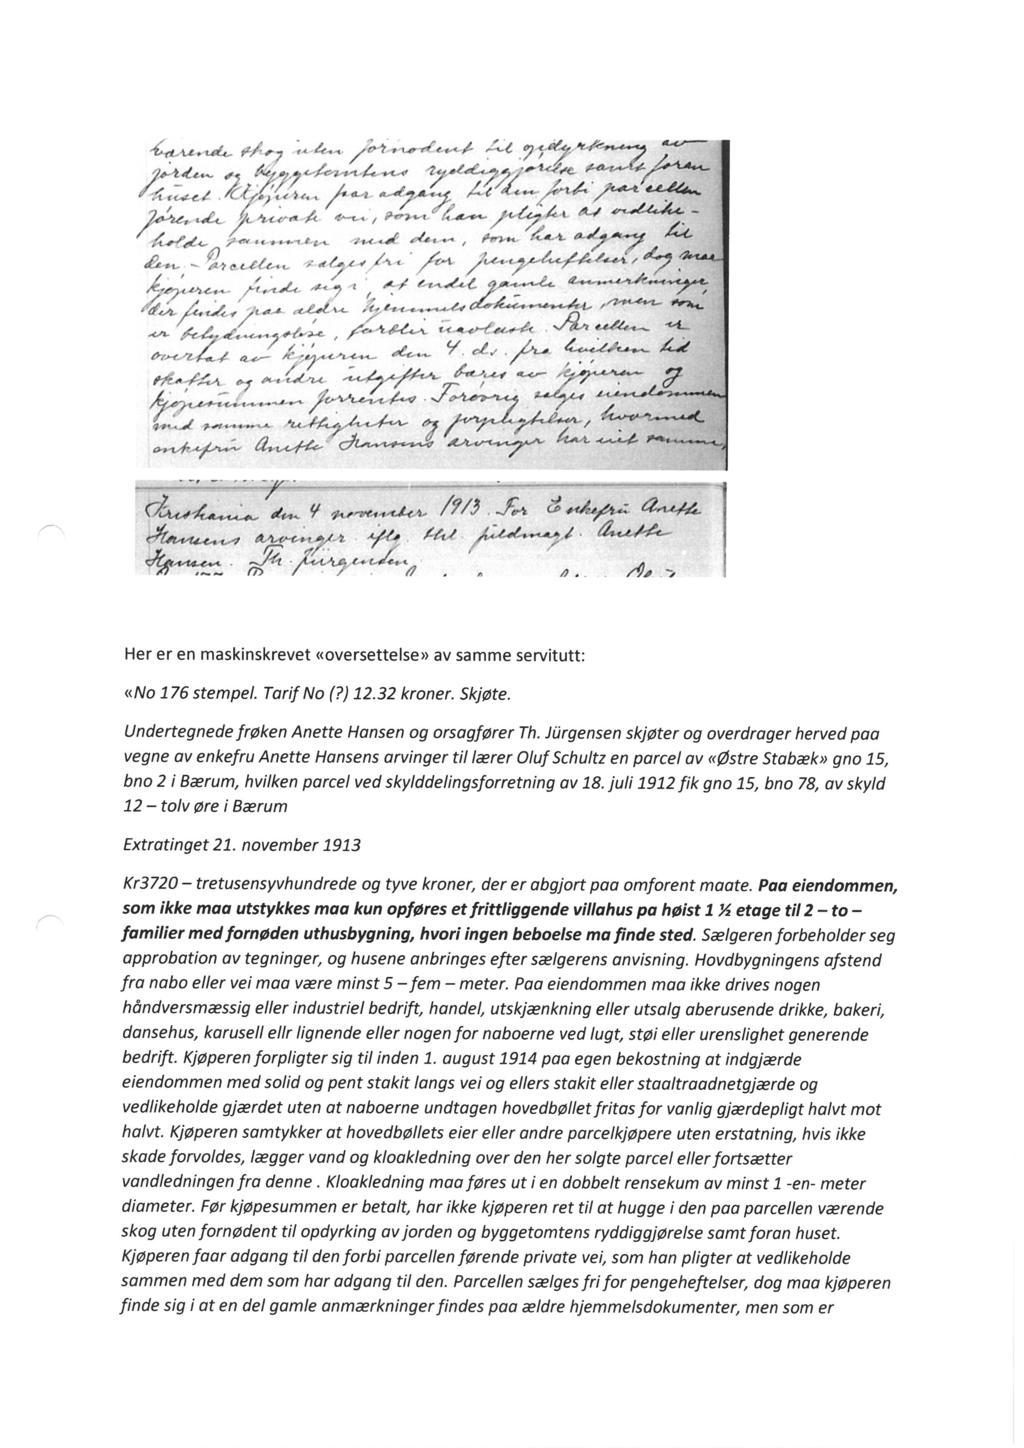 værende skog uten fornødent til opdyrkning av
jorden og byggetomtens ryddiggjørelse samt foran
huset. Kjøperen faar adgang til den forbi parcellen
førende private vei, som han pligter at vedlike-
holde sammen med dem, som har adgang til
den. - Parcellen sælges fri for pengeheftelser, dog maa
kjøperen finde sig i, at endel gamle anmerkninger,
der findes paa ældre hjemmelsdokumenter, men som
er betydningsløse, forblir uavlæste. Parcellen er
overtat av kjøperen den 4. ds. fra hvilken tid
skatter og andre utgifter bæres av kjøperen og
kjøpesummen forrentes. Forøvrig sælges eiendommen
med samme rettigheter og forpligtelser, hvormed
enkefru Anette Hansens arvinger har eiet samme,
Kristiania den 4 november 1913. For Enkefru Anette
Hansens arvinger iflg. thl. fuldmagt. Anette
Hansen. Th. Jürgensen,
Her er en maskinskrevet «oversettelse» av samme servitutt:
«No 176 stempel. Tarif No (?) 12.32 kroner. Skjøte.
Undertegnede frøken Anette Hansen og orsagfører Th. Jürgensen skjøter og overdrager herved paa
vegne av enkefru Anette Hansens arvinger til lærer Oluf Schultz en parcel av «Østre Stabæk» gno 15,
bno 2 i Bærum, hvilken parcel ved skylddelingsforretning av 18. juli 1912 fik gno 15, bno 78, av skyld
12 – tolv øre i Bærum
Extratinget 21. november 1913
Kr3720 – tretusensyvhundrede og tyve kroner, der er abgjort paa omforent maate. Paa eiendommen,
som ikke maa utstykkes maa kun opføres et frittliggende villahus pa høist 1 ½ etage til 2 – to –
familier med fornøden uthusbygning, hvori ingen beboelse ma finde sted. Sælgeren forbeholder seg
approbation av tegninger, og husene anbringes efter sælgerens anvisning. Hovdbygningens afstend
fra nabo eller vei maa være minst 5 – fem – meter. Paa eiendommen maa ikke drives nogen
håndversmæssig eller industriel bedrift, handel, utskjænkning eller utsalg aberusende drikke, bakeri,
dansehus, karusell ellr lignende eller nogen for naboerne ved lugt, støi eller urenslighet generende
bedrift. Kjøperen forpligter sig til inden 1. august 1914 paa egen bekostning at indgjærde
eiendommen med solid og pent stakit langs vei og ellers stakit eller staaltraadnetgjærde og
vedlikeholde gjærdet uten at naboerne undtagen hovedbøllet fritas for vanlig gjærdepligt halvt mot
halvt. Kjøperen samtykker at hovedbøllets eier eller andre parcelkjøpere uten erstatning, hvis ikke
skade forvoldes, lægger vand og kloakledning over den her solgte parcel eller fortsætter
vandledningen fra denne . Kloakledning maa føres ut i en dobbelt rensekum av minst 1 -en- meter
diameter. Før kjøpesummen er betalt, har ikke kjøperen ret til at hugge i den paa parcellen værende
skog uten fornødent til opdyrking av jorden og byggetomtens ryddiggjørelse samt foran huset.
Kjøperen faar adgang til den forbi parcellen førende private vei, som han pligter at vedlikeholde
sammen med dem som har adgang til den. Parcellen sælges fri for pengeheftelser, dog maa kjøperen
finde sig i at en del gamle anmærkninger findes paa ældre hjemmelsdokumenter, men som er